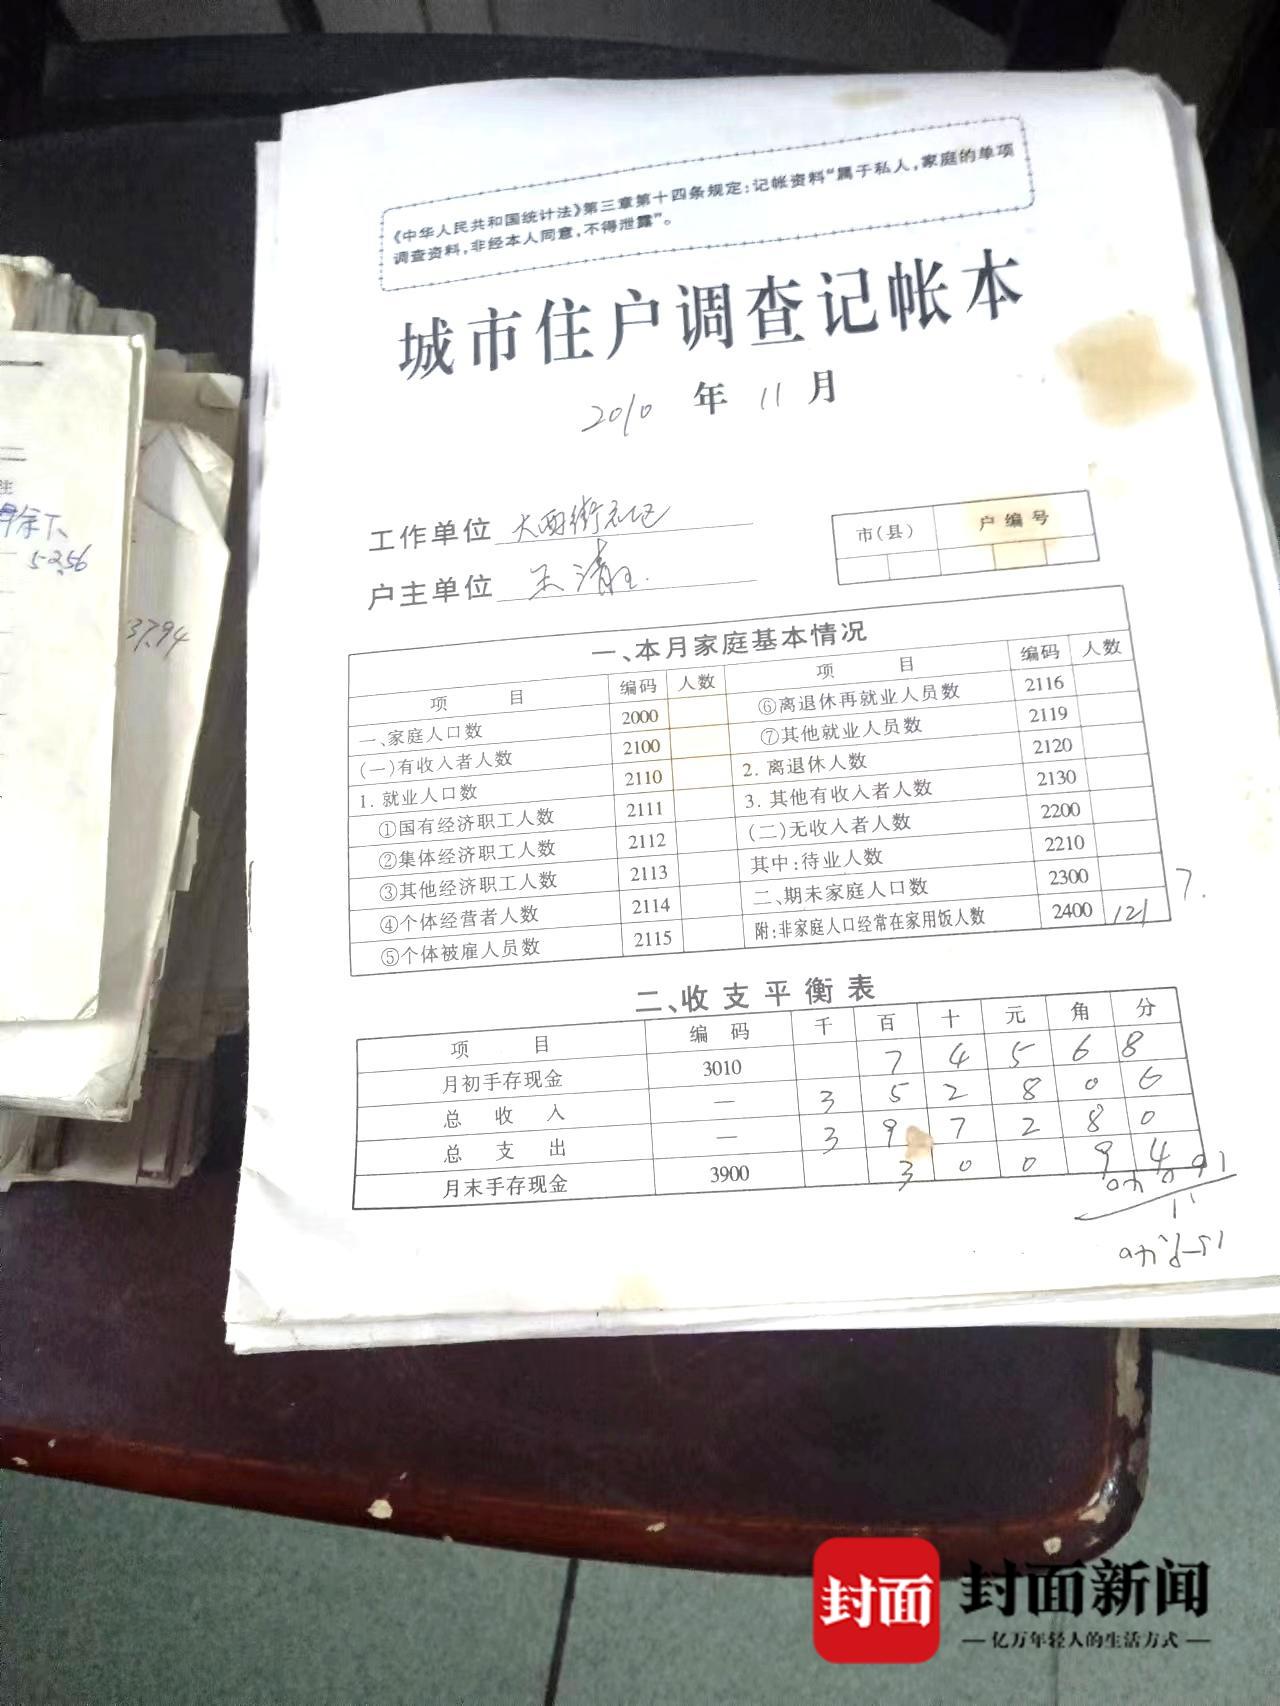 《中华人民共和国统计法》第三章第十四条规定：记帐资料“属于私人，家庭的单项
调查资料，非经本人同意，不得泄露”。
城市住户调查记帐本
2010 年 11 月
工作单位 大西街社区
户主单位
市（县） 户编号
一、本月家庭基本情况
项 目 编码 人数 项 目 编码 人数
一、家庭人口数 2000 ⑥离退休再就业人员数 2116
（一）有收入者人数 2100 ⑦其他就业人员数 2119
1. 就业人口数 2110 2. 离退休人数 2120
①国有经济职工人数 2111 3. 其他有收入者人数 2130
②集体经济职工人数 2112 （二）无收入者人数 2200
③其他经济职工人数 2113 其中：待业人数 2210
④个体经营者人数 2114 二、期未家庭人口数 2300
⑤个体被雇人员数 2115 附：非家庭人口经常在家用饭人数 2400 121
7.
二、收支平衡表
项 目 编 码 千 百 十 元 角 分
月初手存现金 3010 7 4 5 6 8
总 收 入 — 3 5 2 8 0 6
总 支 出 — 3 9 7 2 8 0
月末手存现金 3900 3 0 0 9 4
5256
37.94
封面
封面新闻
—亿万年轻人的生活方式—